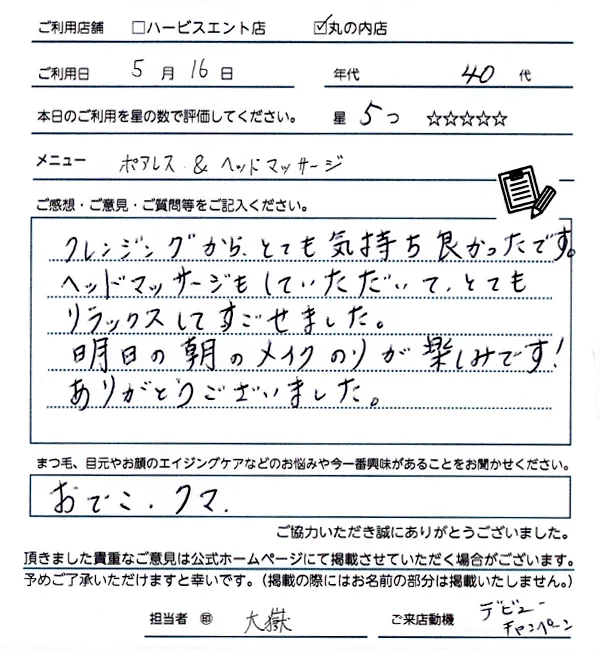 ご利用店舗 □ハービスエント店 ☑丸の内店
ご利用日 5月16日 年代 40代
本日のご利用を星の数で評価してください。 星 5つ ☆☆☆☆☆
メニュー ポアレス & ヘッドマッサージ
ご感想・ご意見・ご質問等をご記入ください。
クレンジングから、とても気持ち良かったです。
ヘッドマッサージもしていただいて、とても
リラックスしてすごせました。
明日の朝のメイクのりが楽しみです!
ありがとうございました。
まつ毛、目元やお顔のエイジングケアなどのお悩みや今一番興味があることをお聞かせください。
おでこ.クマ.
ご協力いただき誠にありがとうございました。
頂きました貴重なご意見は公式ホームページにて掲載させていただく場合がございます。
予めご了承いただけますと幸いです。(掲載の際にはお名前の部分は掲載いたしません。)
担当者 ㊞ 大嶽 ご来店動機 デビュー
キャンペーン